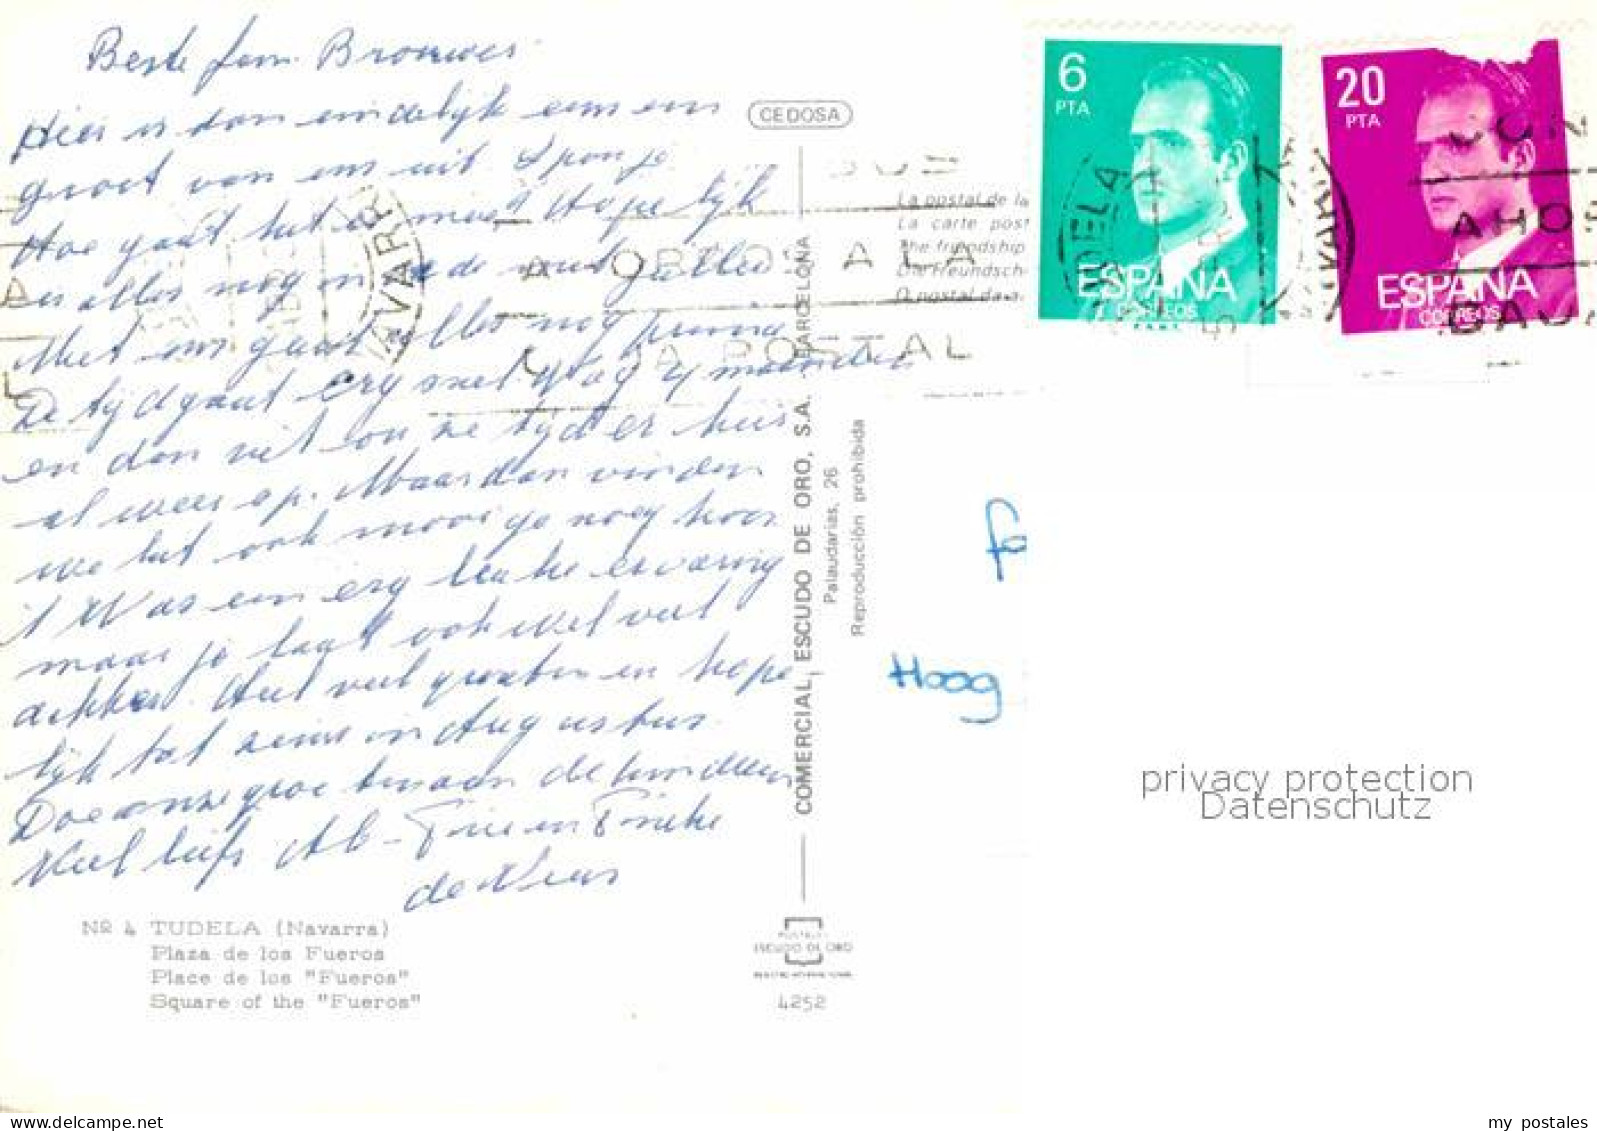 Beste fam. Brouwer
Hier is dan eindelijk eens een
groet van ons uit Spanje
Hoe gaat het er mee? Hopelijk
is alles nog in orde met jullie
Met ons gaat alles nog prima
De tijd gaat erg snel. Nog 4 maanden
en dan zit onze tijd er hier
al weer op. Maar dan vinden
we het ook mooi genoeg hoor
't Was een erg leuke ervaring
maar je laat ook wel veel
achter. Heel veel groeten en hope-
lijk tot ziens in Augustus
Doe onze groeten aan de kinderen
Veel liefs Ab - Tine en Tineke
de Vries
CEDOSA
La postal de la
La carte post
The friendship
Die Freundsch
COMERCIAL, ESCUDO DE ORO, S.A. BARCELONA
Palaudarias, 26
Reproducción prohibida
6
PTA
ESPAÑA
CORREOS
20
PTA
ESPAÑA
CORREOS
TUDELA
NAVARRA
A LA
CAJA POSTAL
AHOR
Fa
Hoog
privacy protection
Datenschutz
Nº 4 TUDELA (Navarra)
Plaza de los Fueros
Place de los "Fueros"
Square of the "Fueros"
ESCUDO DE ORO
4252
my postales